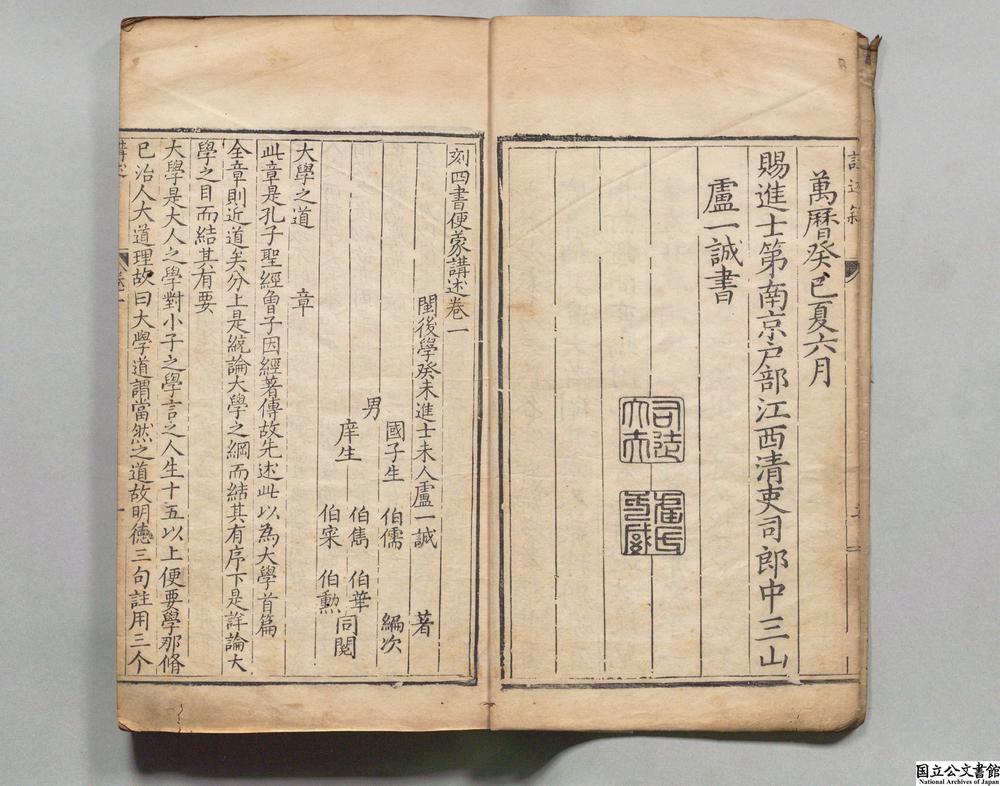 萬曆癸巳夏六月
賜進士第南京戸部江西清吏司郎中三山
盧一誠書
刻四書便蒙講述卷一
閩後學癸未進士未人盧一誠 著
國子生 伯儒 編次
男
庠生 伯雋 伯華
伯寀 伯勲 同閱
大學之道 章
此章是孔子聖經曾子因經著傳故先述此以為大學首篇
全章則近道矣分上是統論大學之綱而結其有序下是詳論大
學之目而結其有要
大學是大人之學對小子之學言之人生十五以上便要學那脩
已治人大道理故曰大學道謂當然之道故明德三句註用三个
国立公文書館
National Archives of Japan